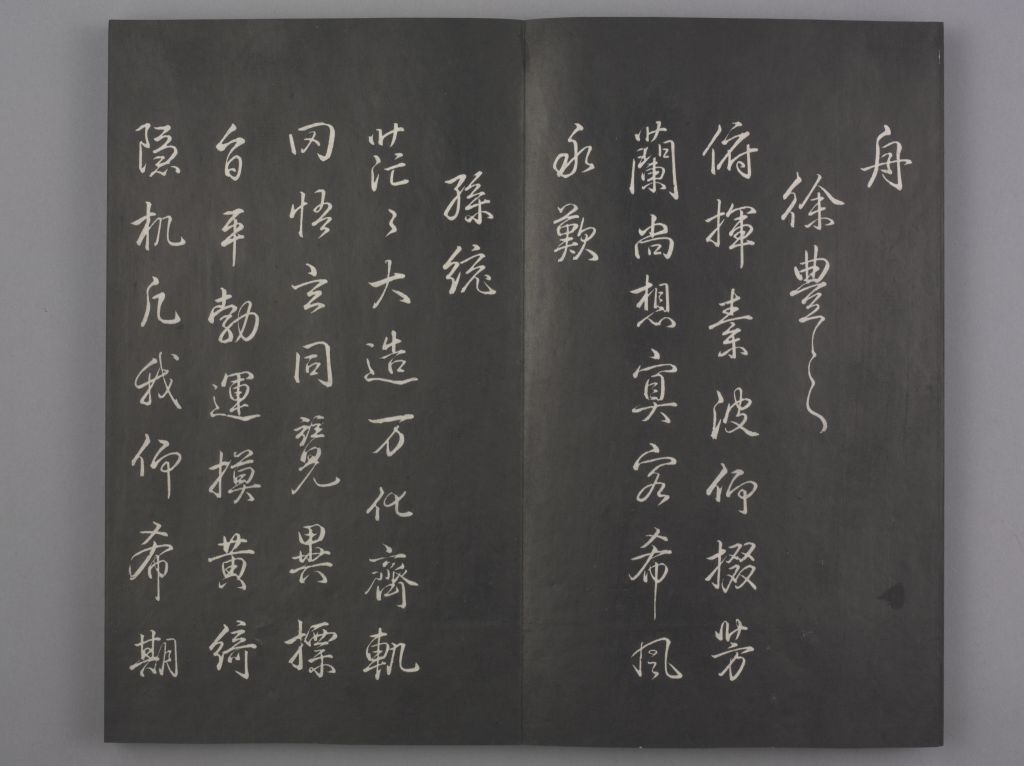 舟
徐豐之
俯揮素波仰掇芳
蘭尚想冥客希風
永歎
孫統
茫〻大造万化齊軌
罔悟玄同競異摽
旨平勃運摸黃綺
隱机凡我仰希期